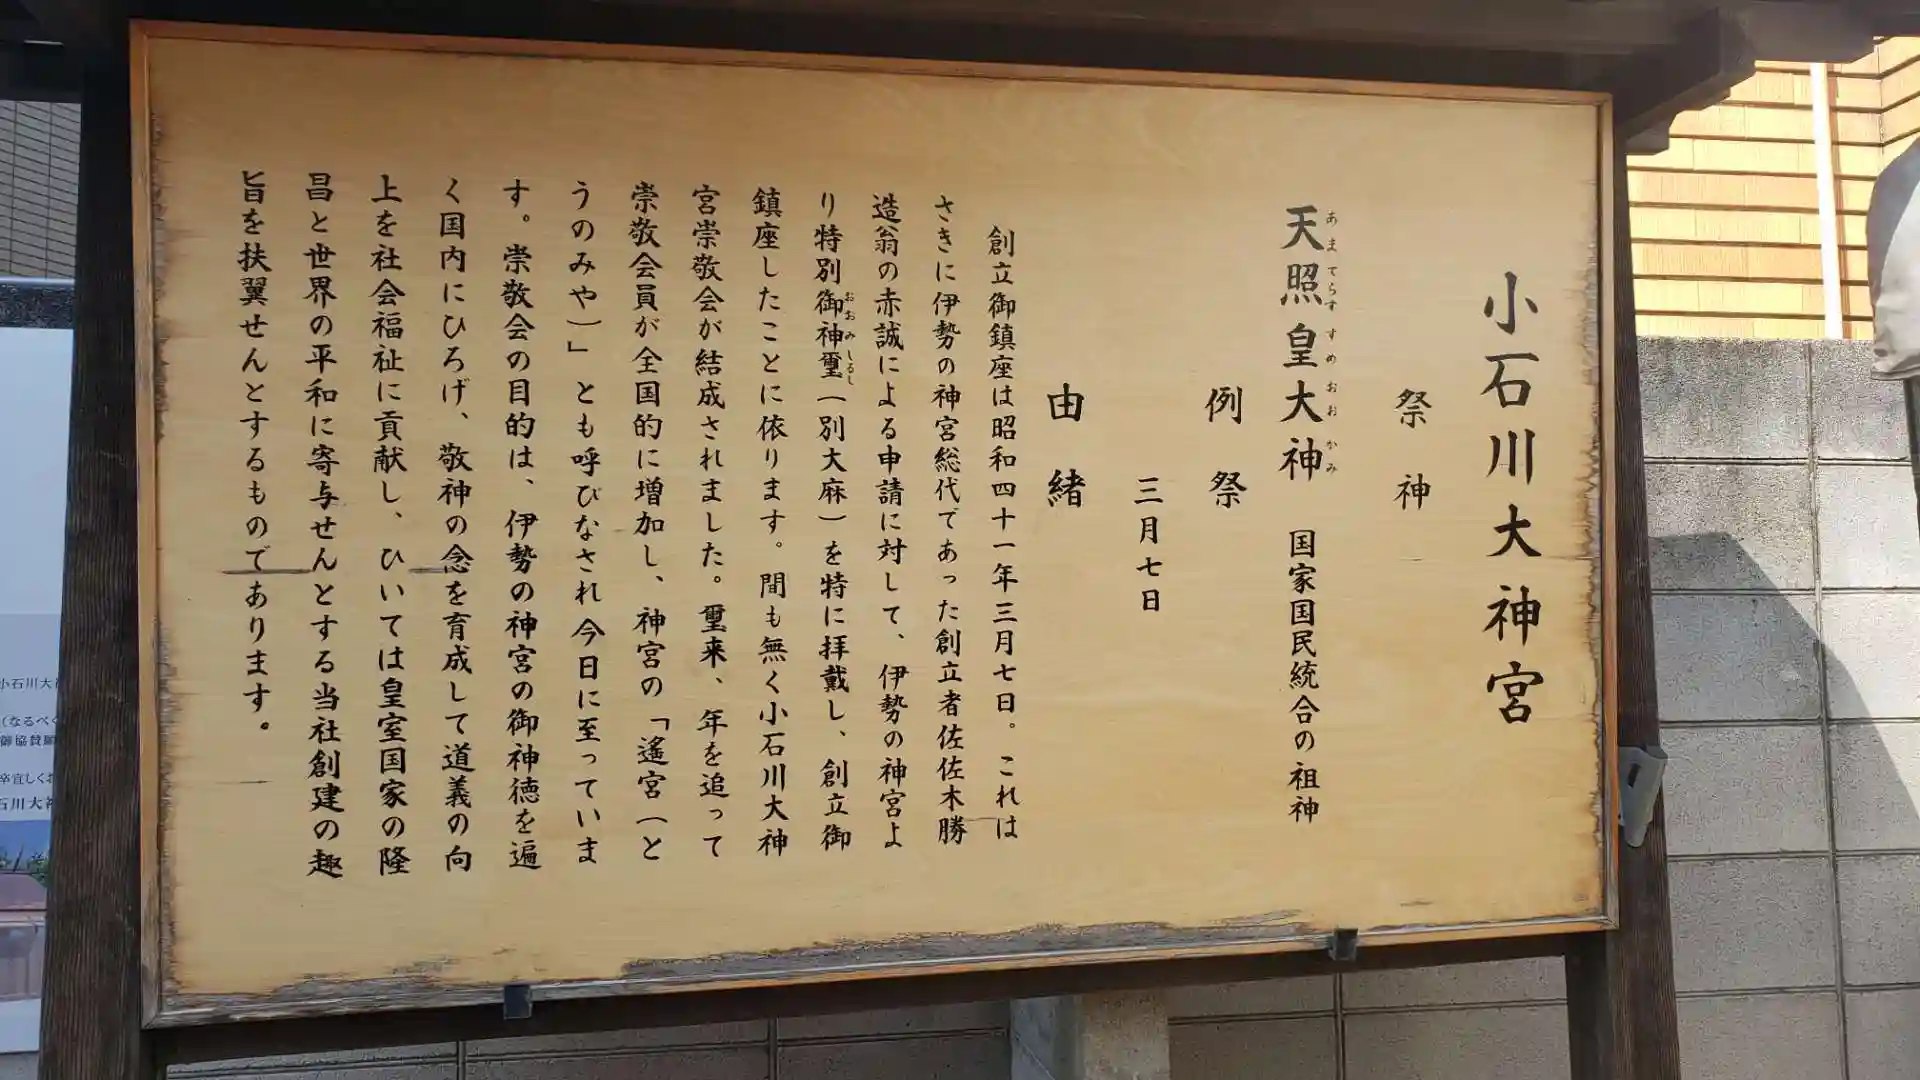 小石川大神宮
祭神
天照皇大神 国家国民統合の祖神
あまてらすすめおおかみ
例祭
三月七日
由緒
創立御鎮座は昭和四十一年三月七日。これは
さきに伊勢の神宮総代であった創立者佐佐木勝
造翁の赤誠による申請に対して、伊勢の神宮よ
り特別御神璽(別大麻)を特に拝戴し、創立御
おおみしるし
鎮座したことに依ります。間も無く小石川大神
宮崇敬会が結成されました。璽来、年を追って
崇敬会員が全国的に増加し、神宮の「遙宮(と
うのみや)」とも呼びなされ今日に至っていま
す。崇敬会の目的は、伊勢の神宮の御神徳を遍
く国内にひろげ、敬神の念を育成して道義の向
上を社会福祉に貢献し、ひいては皇室国家の隆
昌と世界の平和に寄与せんとする当社創建の趣
旨を扶翼せんとするものであります。
小石川大
(なるべく
御協賛願
卒宜しくお
石川大神